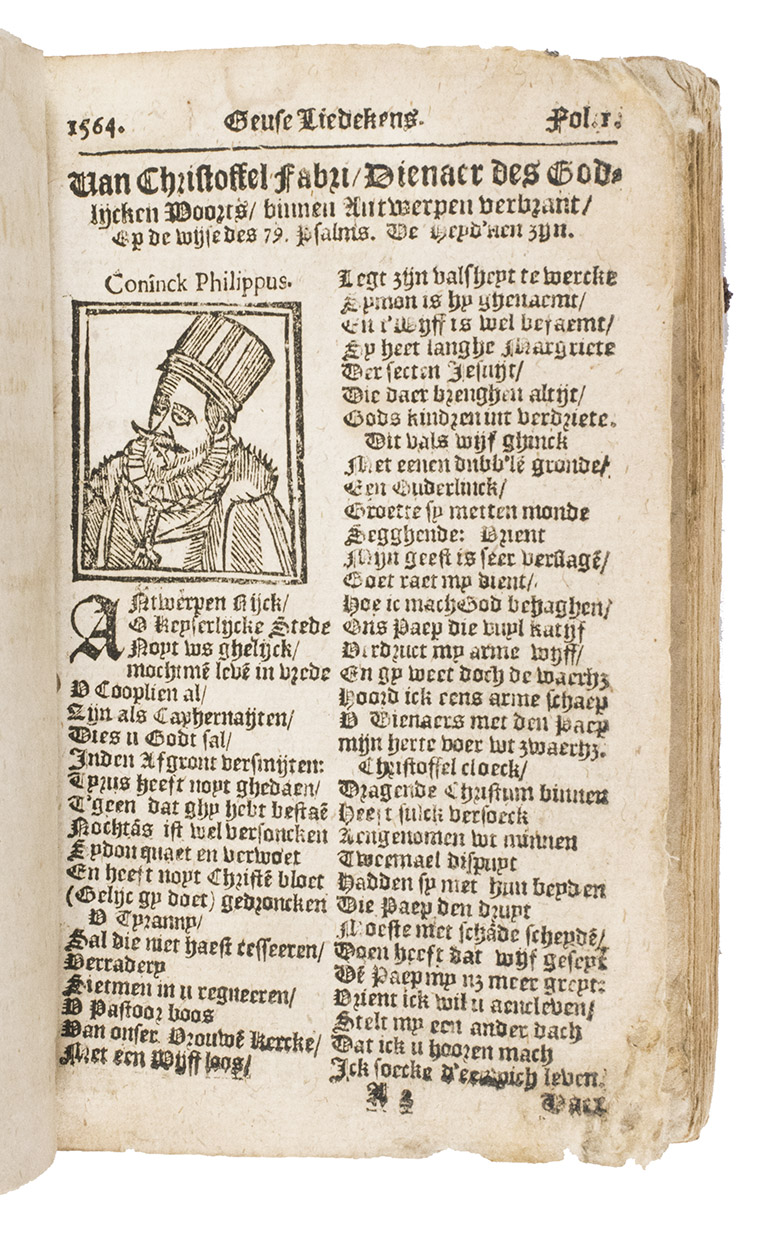 1564. Geuse Liedekens. Fol. 1.
Van Christoffel Fabri/ Dienaer des God-
lijcken Woorts/ binnen Antwerpen verbrant/
Op de wijse des 79. Psalms. De Heyd'nen zijn.
Coninck Philippus.
ANtwerpen Rijck/
O Keyserlijcke Stede
Noyt ws ghelijck/
mochtmē levē in vrede
V Cooplien al/
Zijn als Caphernaijten/
Dies u Godt sal/
Inden Afgront versmijten:
Tyrus heeft noyt ghedaen/
T'geen dat ghy hebt bestaē
Nochtās ist wel versoncken
Sydon quaet en verwoet
En heeft noyt Christē bloet
(Gelijc gy doet) gedroncken
V Tyranny/
Sal die niet haest cesseeren/
Verradery
Sietmen in u regneeren/
V Pastoor boos
Van onser Vrouwē Kercke/
Met een Wijff loos/
Legt zijn valsheyt te wercke
Symon is hy ghenaemt/
En t'Wijff is wel befaemt/
Sy heet langhe Margriete
Der secten Jesuijt/
Die daer brenghen altijt/
Gods kindren int verdriete.
Dit vals wijf ghinck
Met eenen dubb'lē gronde/
Een Ouderlinck/
Groette sy metten monde
Segghende: Vrient
Mijn geest is seer verslagē/
Goet raet my dient/
Hoe ic mach God behaghen/
Ons Paep die vuyl katijf
Verdruct my arme wijff/
En gy weet doch de waerhz
Hoord ick eens arme schaep
V Dienaers met den Paep
mijn herte voer wt zwaerhz.
Christoffel cloeck/
Dragende Christum binnen
Heeft sulck versoeck
Aengenomen wt minnen
Tweemael dispuyt
Hadden sy met hun beyden
Die Paep den druyt
Moeste met schāde scheydē/
Doen heeft dat wijf geseyt
Dē Paep my nz meer greyt:
Vrient ick wil u aencleven/
Stelt my een ander dach
Dat ick u hooren mach
Ick soecke d'eewich leven.
A 2